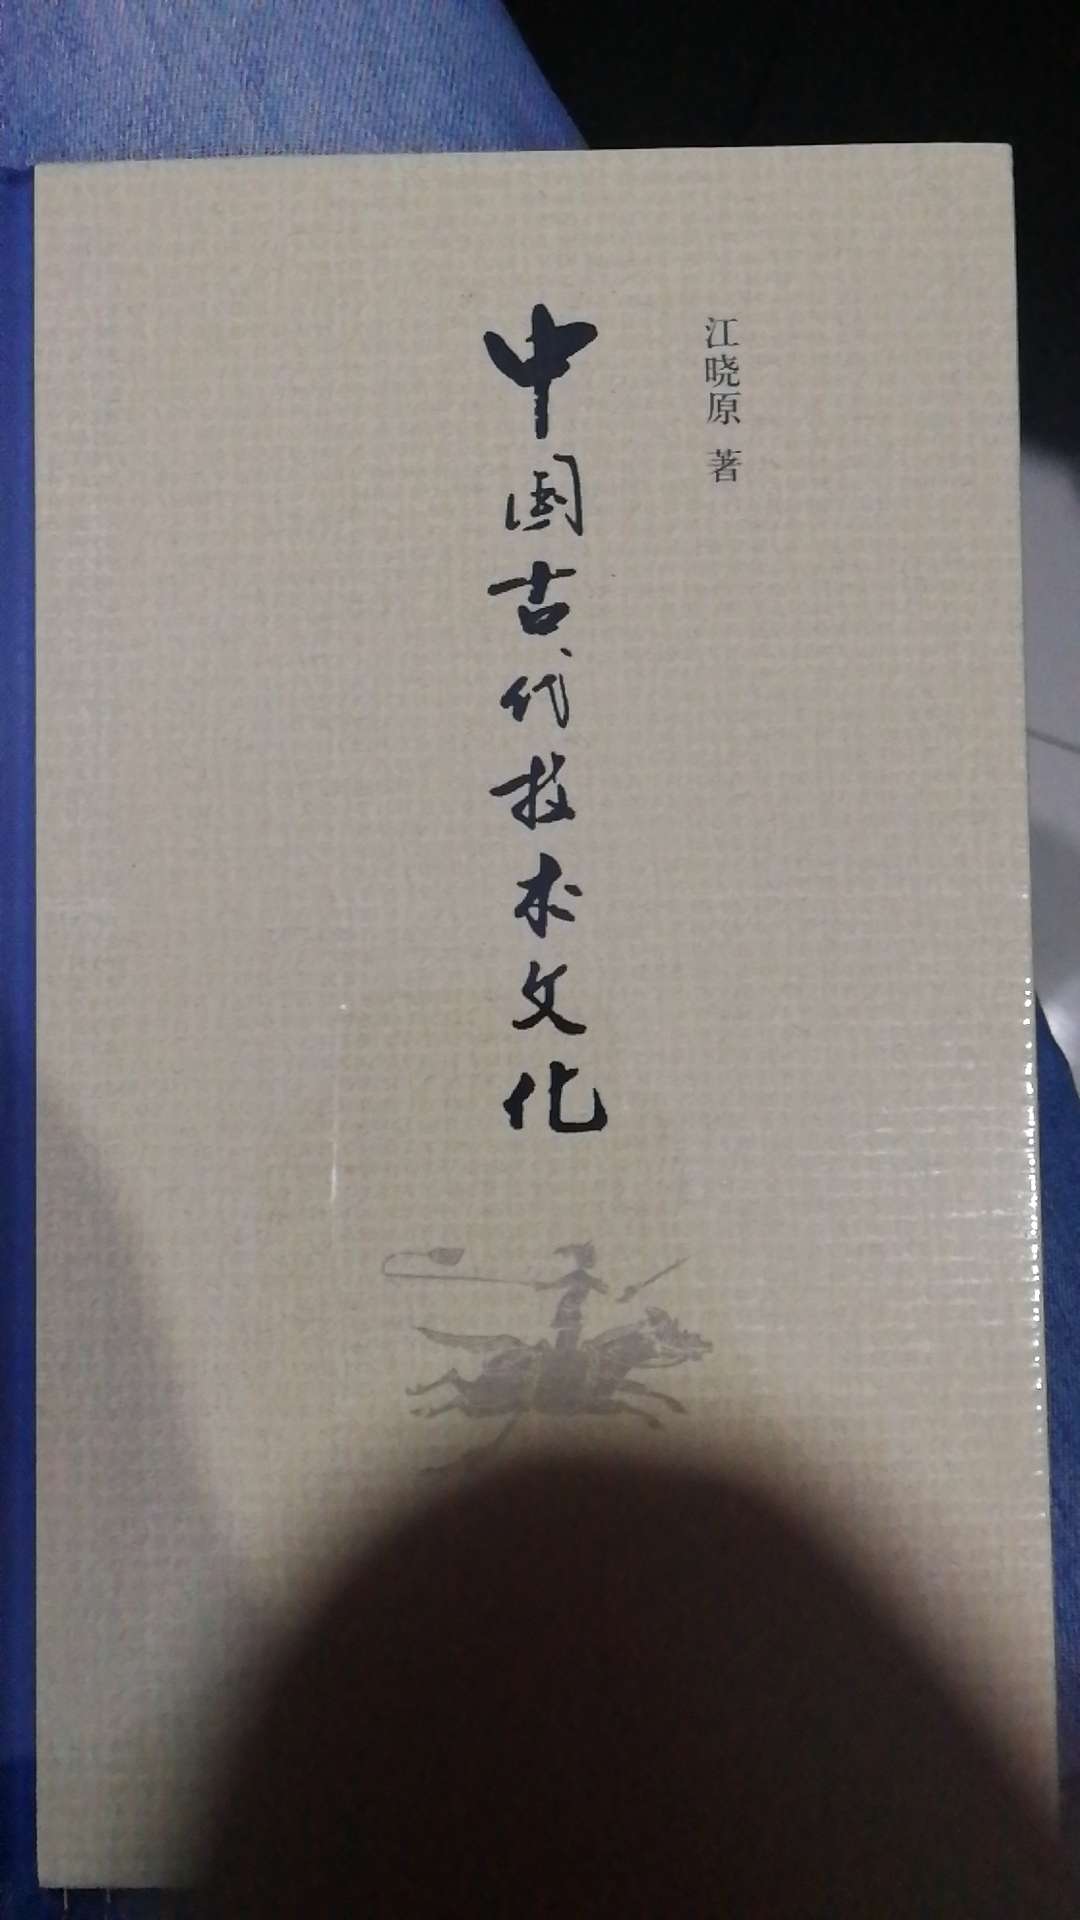 江晓原 著
中国古代技术文化